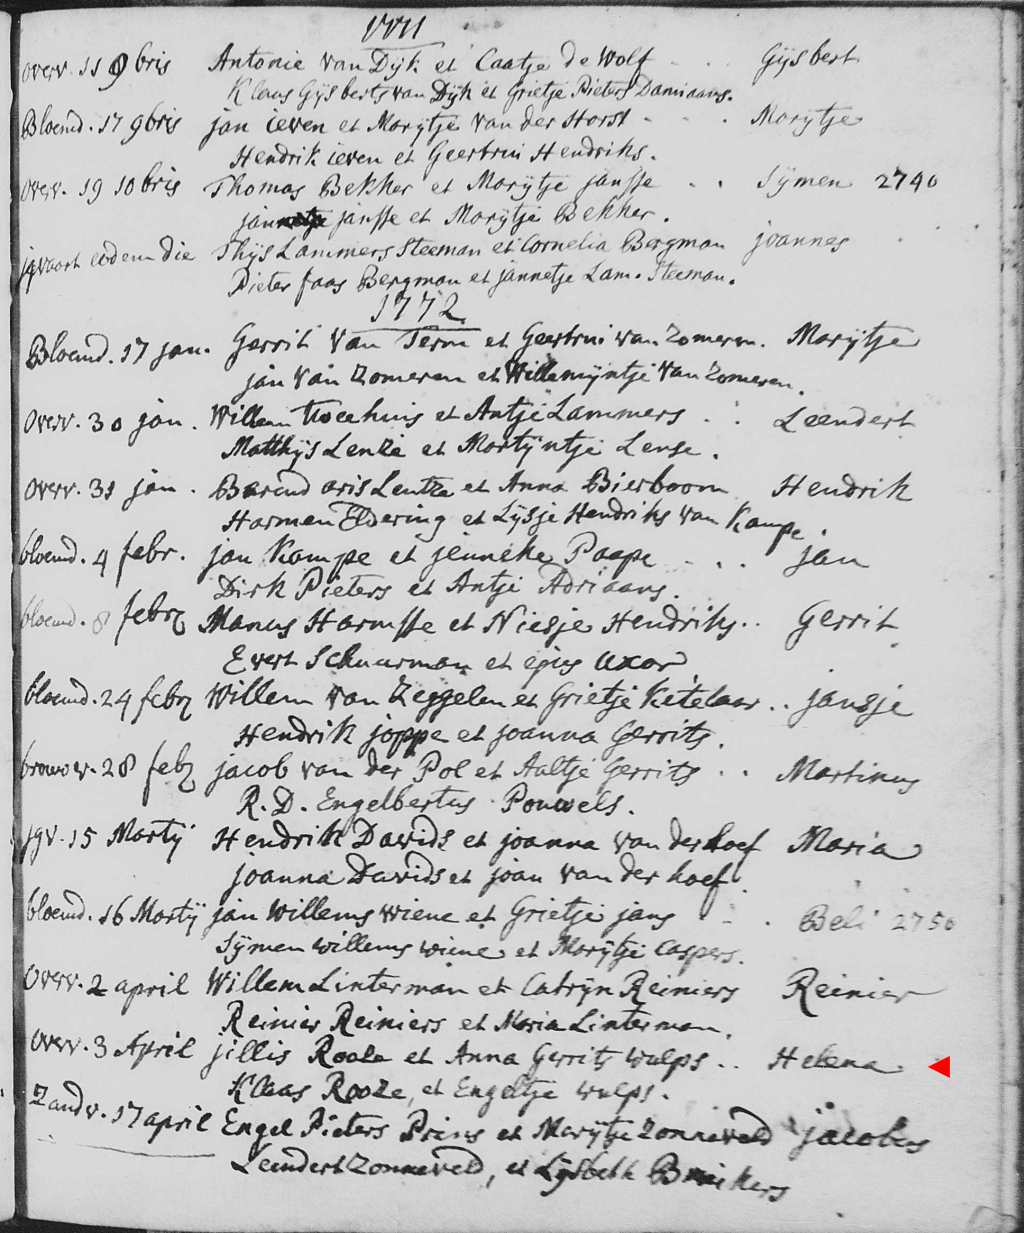 1771
overv. 11 9bris Antonie van Dijk et Caatje de Wolf . . Gijsbert
Klaas Gijsberts van Dijk et Grietje Pieters Damiaans.
Bloemd. 17 9bris jan ieven et Marijtje van der Horst . . . Marijtje
Hendrik ieven et Geertrui Hendriks.
overv. 19 10bris Thomas Bekker et Marijtje jansse . . Sijmen 2740
jan jansse et Marijtje Bekker.
eodem die Thijs Lammers Steeman et Cornelia Bergman joannes
Pieter faas Bergman et jannetje Lam. Steeman.
1772
Bloemd. 17 jan. Gerrit van Term et Geertrui van Zomeren. Marijtje
jan van Zomeren et Willemijntje van Zomeren.
overv. 30 jan. Willem Tweehuis et Antje Lammers . . Leendert
Matthijs Lentze et Martijntje Lense.
overv. 31 jan. Barend aris Lentze et Anna Bierboom Hendrik
Harmen Eldering et Lijsje Hendriks van Kampe.
bloemd. 4 febr. jan Kampe et jenneke Paape . . . jan
Dirk Pieters et Antje Adriaans.
bloemd. 8 febr Manus Harmsse et Niesje Hendriks . . Gerrit
Evert Schuurman et ejus uxor
bloemd. 24 febr Willem van Zeggelen et Grietje Ketelaar . . jansje
Hendrik joppe et joanna Gerrits.
brouwer. 28 feb jacob van der Pol et Aaltje Gerrits . . Martinus
R. D. Engelbertus Pouwels.
jgv. 15 Martij Hendrik Davids et joanna van der hoef Maria
joanna Davids et joan van der hoef.
bloemd. 16 Martij jan Willems wiene et Grietje jans . . Beli 2750
Sijmen willems wiene et Marijtje Caspers.
Overv. 2 april Willem Linterman et Catrijn Reiniers Reinier
Reinier Reiniers et Maria Linterman.
overv. 3 April jillis Rooze et Anna Gerrits wulps . . Helena
Klaas Rooze, et Engeltje wulps.
Zandv. 17 april Engel Pieters Prins et Marijtje Zonneveld jacobus
Leendert Zonneveld, et Lijsbeth Bruikers